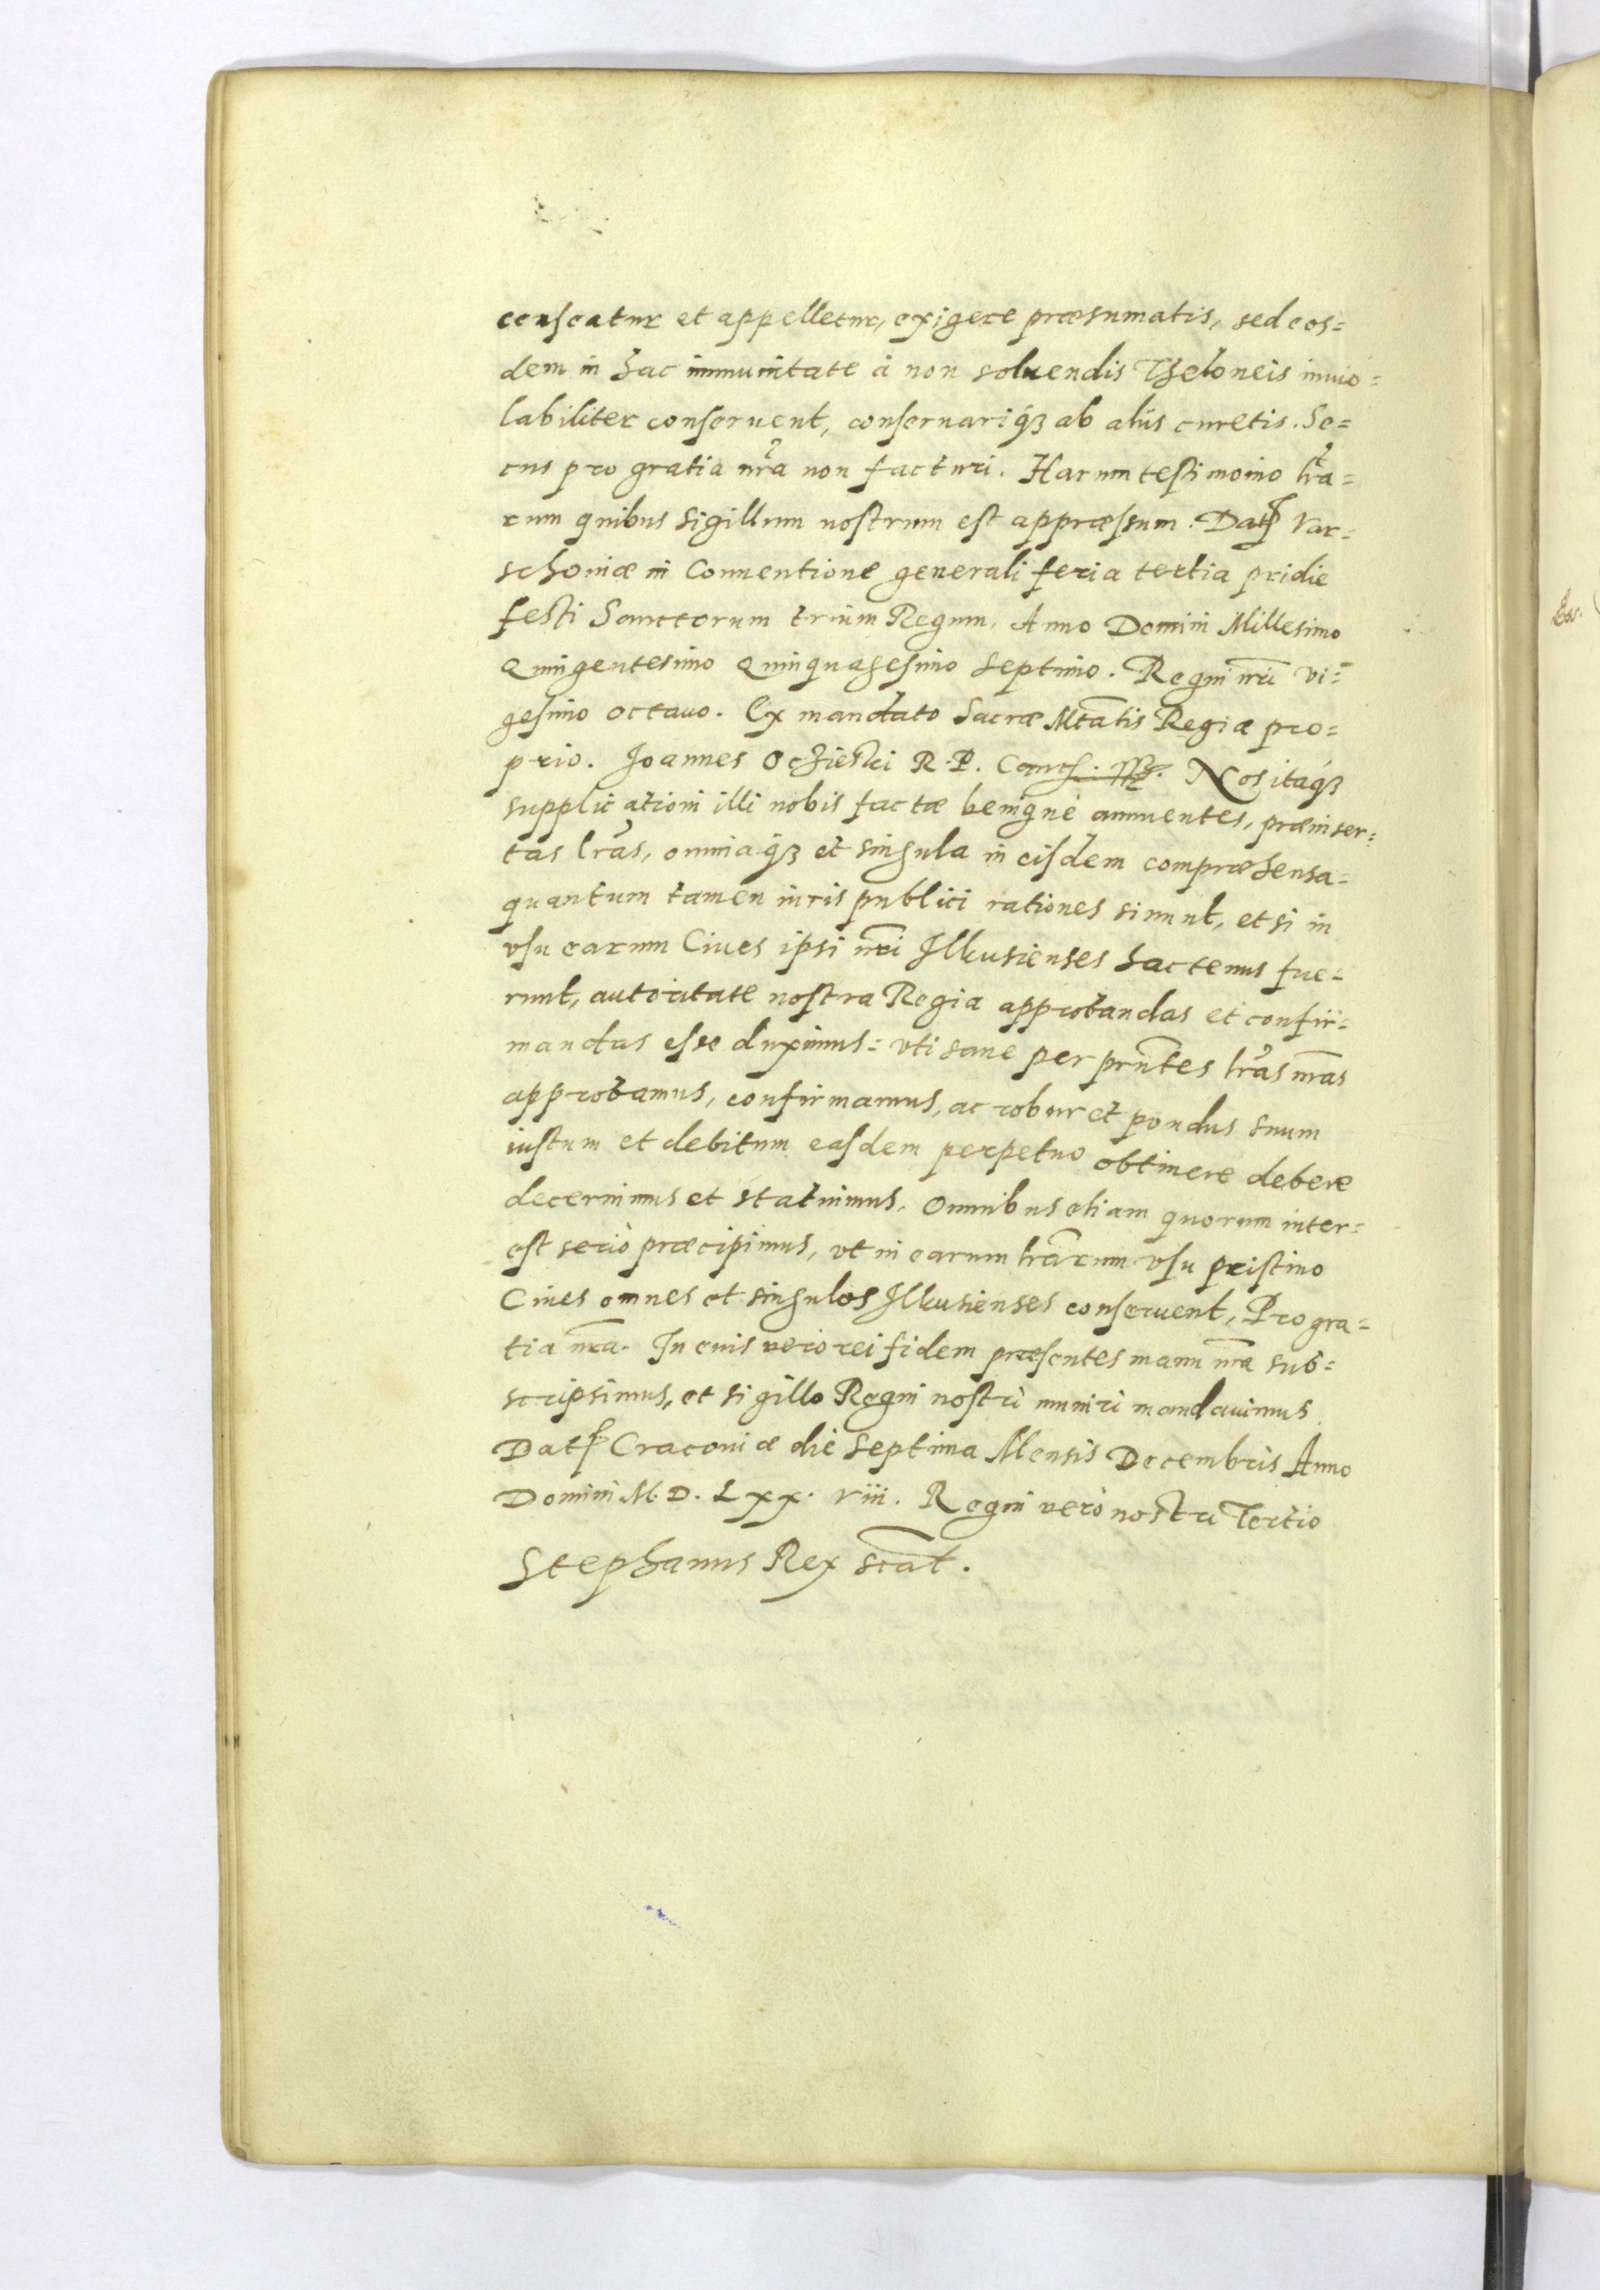 censeatur et appelletur, exigere præsumatis, sed eos=
dem in hac immunitate à non soluendis Theloneis inuio=
labiliter conseruent, conseruariq́ȝ ab aliis curetis. Se=
cus pro gratia nr̃a non facturi. Harum testimonio lr̃a=
rum quibus Sigillum nostrum est appræssum. Dat̃ Var=
schoniæ in Conuentione generali feria tertia pridie
festi Sanctorum trium Regum, Anno Domini Millesimo
Quingentesimo Quinquagesimo Septimo. Regni nr̃i vi=
gesimo octauo. Ex mandato Sacræ Mtãtis Regiæ pro=
prio. Joannes Oczieski R. P. Canc. Nos itaq́ȝ
supplicationi illi nobis factæ benignè annuentes, præinser=
tas lr̃as, omniaq́ȝ et singula in eisdem compræhensa=
quantum tamen iuris publici rationes sinunt, et si in
vsu earum Ciues ipsi nr̃i Ilkusienses hactenus fue=
runt, autoritate nostra Regia approbandas et confir=
mandas esse duximus= vti sane per prñtes lr̃as nr̃as
approbamus, confirmamus, ac robur et pondus suum
iustum et debitum easdem perpetuo obtinere debere
decernimus et statuimus. Omnibus etiam quorum inter=
est seriò præcipimus, vt in earum lr̃arum vsu pristino
Ciues omnes et singulos Ilkusienses conseruent, Pro gra=
tia nr̃a. In cuius vero rei fidem præsentes manu nr̃a sub=
scripsimus, et sigillo Regni nostri muniri mandauimus
Dat̃ Cracouiæ die Septima Mensis Decembris Anno
Domini M. D. Lxx. viii. Regni verò nostri Tertio
Stephanus Rex sc̃at.